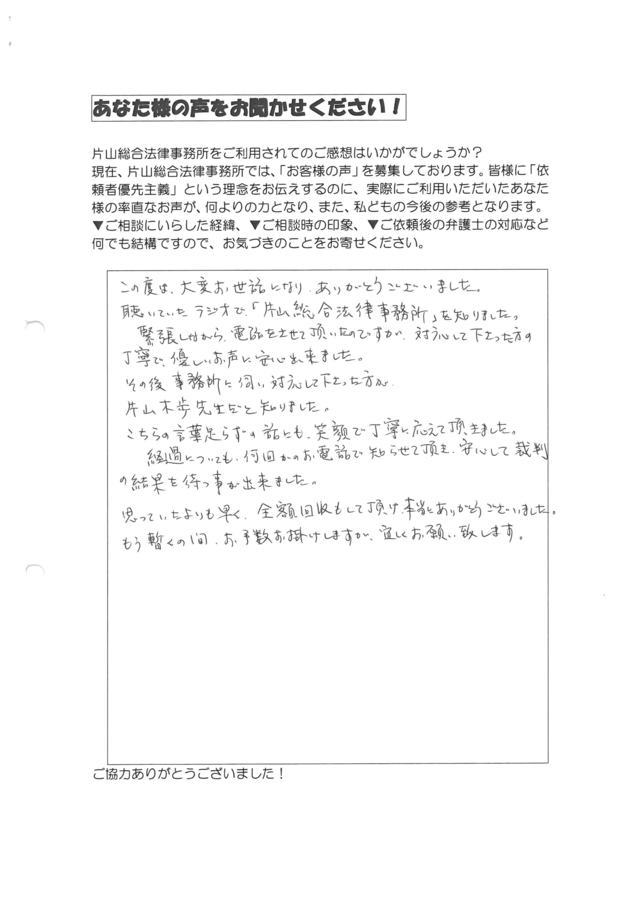 あなた様の声をお聞かせください！
片山総合法律事務所をご利用されてのご感想はいかがでしょうか？
現在、片山総合法律事務所では、「お客様の声」を募集しております。皆様に「依
頼者優先主義」という理念をお伝えするのに、実際にご利用いただいたあなた
様の率直なお声が、何よりの力となり、また、私どもの今後の参考となります。
▼ご相談にいらした経緯、▼ご相談時の印象、▼ご依頼後の弁護士の対応など
何でも結構ですので、お気づきのことをお寄せください。
この度は、大変お世話になり、ありがとうございました。
聴いていたラジオで、「片山総合法律事務所」を知りました。
緊張しながら、電話をさせて頂いたのですが、対応して下さった方の
丁寧で、優しいお声に安心出来ました。
その後 事務所に伺い 対応して下さった方が、
片山木歩先生だと知りました。
こちらの言葉足らずの話にも、笑顔で丁寧に応えて頂きました。
経過についても、何回かのお電話で知らせて頂き、安心して裁判
の結果を待つ事が出来ました。
思っていたよりも早く、全額回収もして頂け、本当にありがとうございました。
もう暫くの間、お手数お掛けしますが、宜しくお願い致します。
ご協力ありがとうございました！